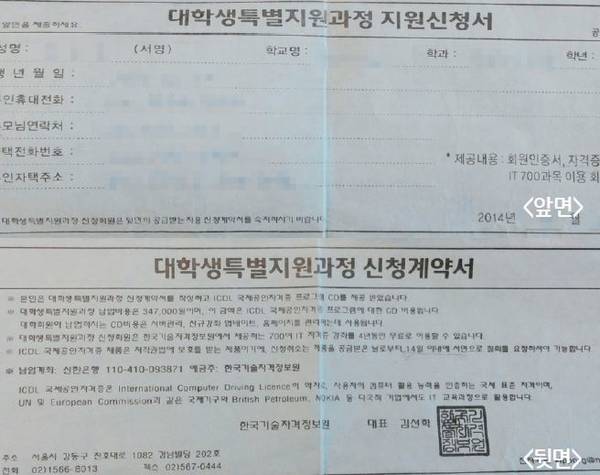 대학생특별지원과정 지원신청서
(서명) 학교명 : 학과 : 학년 :
생 년 월 일 :
본인휴대전화 :
부모님연락처 :
자택전화번호 :
본인자택주소 :
* 제공내용 : 회원인증서, 자격증
IT 700과목 이용 회
2014년 월
<앞면>
대학생특별지원과정 신청계약서
※ 본인은 대학생특별지원과정 신청계약서를 작성하고 ICDL 국제공인자격증 프로그램 CD를 제공 받았습니다
※ 대학생특별지원과정 납입비용은 347,000원이며, 이 금액은 ICDL 국제공인자격증 프로그램에 대한 CD 비용입니다
대학회원이 납입하시는 CD비용은 서버관리, 신규강좌 업데이트, 홈페이지를 관리하는데 사용됩니다
※ 대학생특별지원과정 신청회원은 한국기술자격정보원에서 제공하는 700여 IT 자격증 강좌를 4년동안 무료로 이용할 수 있습니다
※ ICDL 국제공인자격증 제품은 저작권법에 보호를 받는 제품이기에, 신청취소는 제품을 공급받은 날로부터 14일 이내에 서면으로 철회를 요청하셔야 가능합니다
※ 납입계좌 : 신한은행 110-410-093871 예금주: 한국기술자격정보원
ICDL 국제공인자격증은 International Computer Driving Licence의 약자로, 사용자의 컴퓨터 활용 능력을 인증하는 국제 표준 자격이며,
UN 및 European Commission과 같은 국제기구와 British Petroleum, NOKIA 등 다국적 기업에서도 IT 교육과정으로 활용합니다.
한국기술자격정보원 대표 김선학
주소 서울시 강동구 천호대로 1082 경남빌딩 202호
전화 02)1566-8013 팩스 02)567-0444
<뒷면>